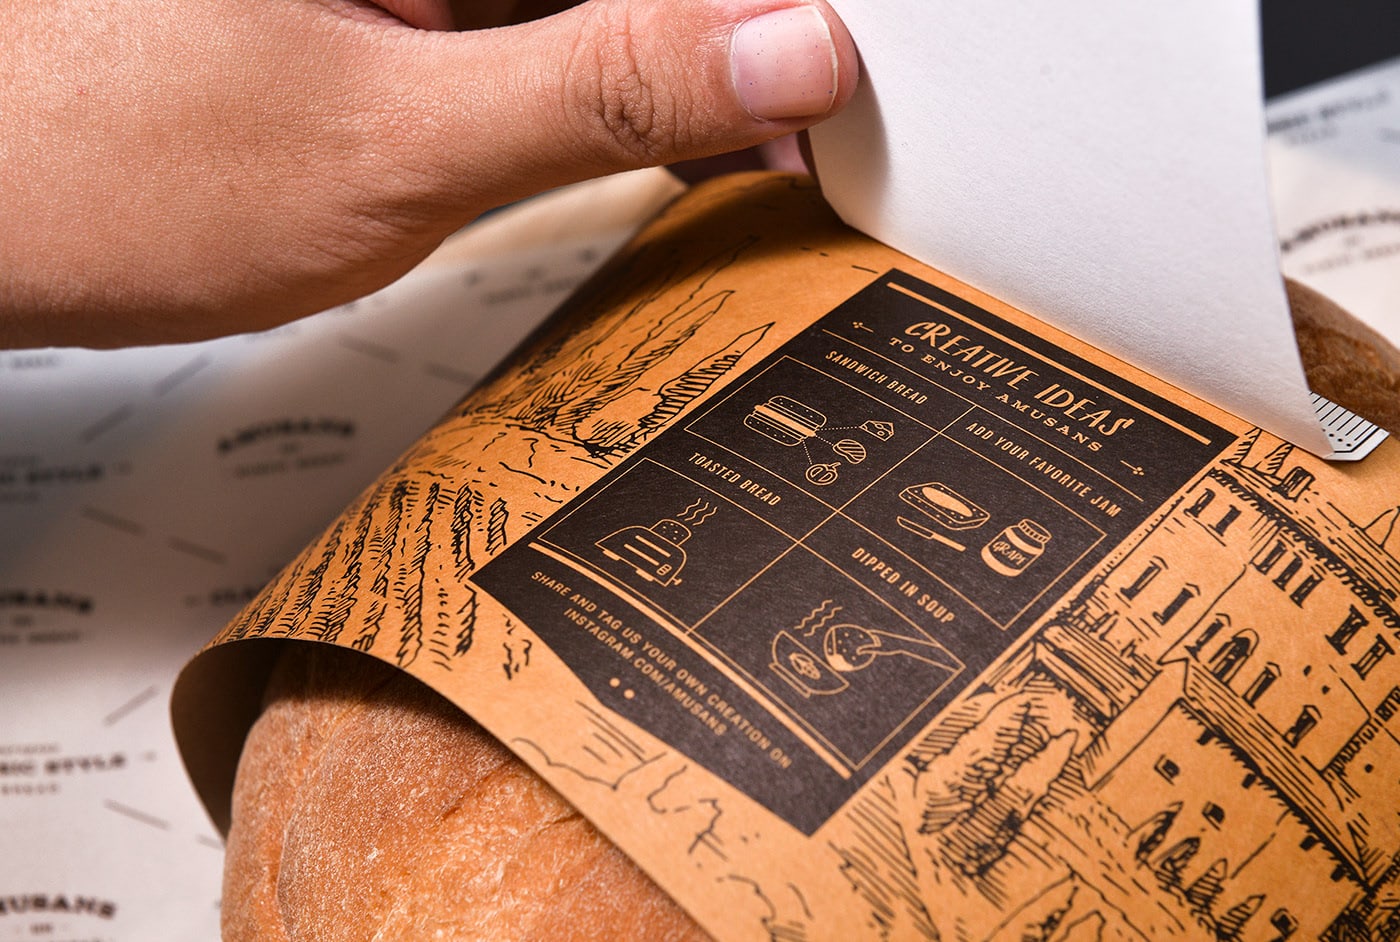 CREATIVE IDEAS
TO ENJOY AMUSANS
SANDWICH BREAD
ADD YOUR FAVORITE JAM
GRAPE
TOASTED BREAD
DIPPED IN SOUP
SHARE AND TAG US YOUR OWN CREATION ON
INSTAGRAM.COM/AMUSANS
AMUSANS
STYLE
AMUSANS